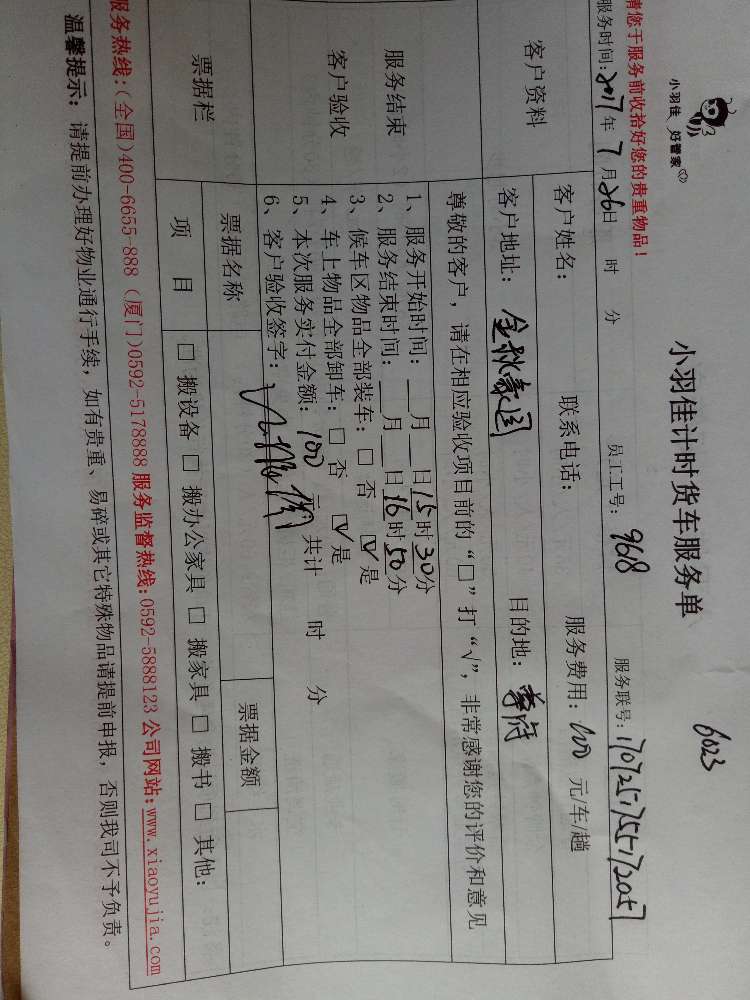 小羽佳 好管家
小羽佳计时货车服务单
6023
请您于服务前收拾好您的贵重物品！
服务时间：2017年7月26日 时 分 员工工号：968 服务联号：170725175517205
客户资料
客户姓名： 联系电话： 服务费用：100 元/车/趟
客户地址：金秋豪园 目的地：学府
服务结束
客户验收
尊敬的客户，请在相应验收项目前的“□”打“√”，非常感谢您的评价和意见
1、服务开始时间：__月__日15时30分
2、服务结束时间：__月__日16时50分
3、候车区物品全部装车：□ 否 ☑ 是
4、车上物品全部卸车：□ 否 ☑ 是
5、本次服务实付金额：100元 共计 时 分
6、客户验收签字：
票据栏
票据名称 票据金额
项 目 □ 搬设备 □ 搬办公家具 □ 搬家具 □ 搬书 □ 其他：
服务热线：(全国)400-6655-888 (厦门)0592-5178888 服务监督热线：0592-5888123 公司网站：www.xiaoyujia.com
温馨提示：请提前办理好物业通行手续，如有贵重、易碎或其它特殊物品请提前申报，否则我司不予负责。